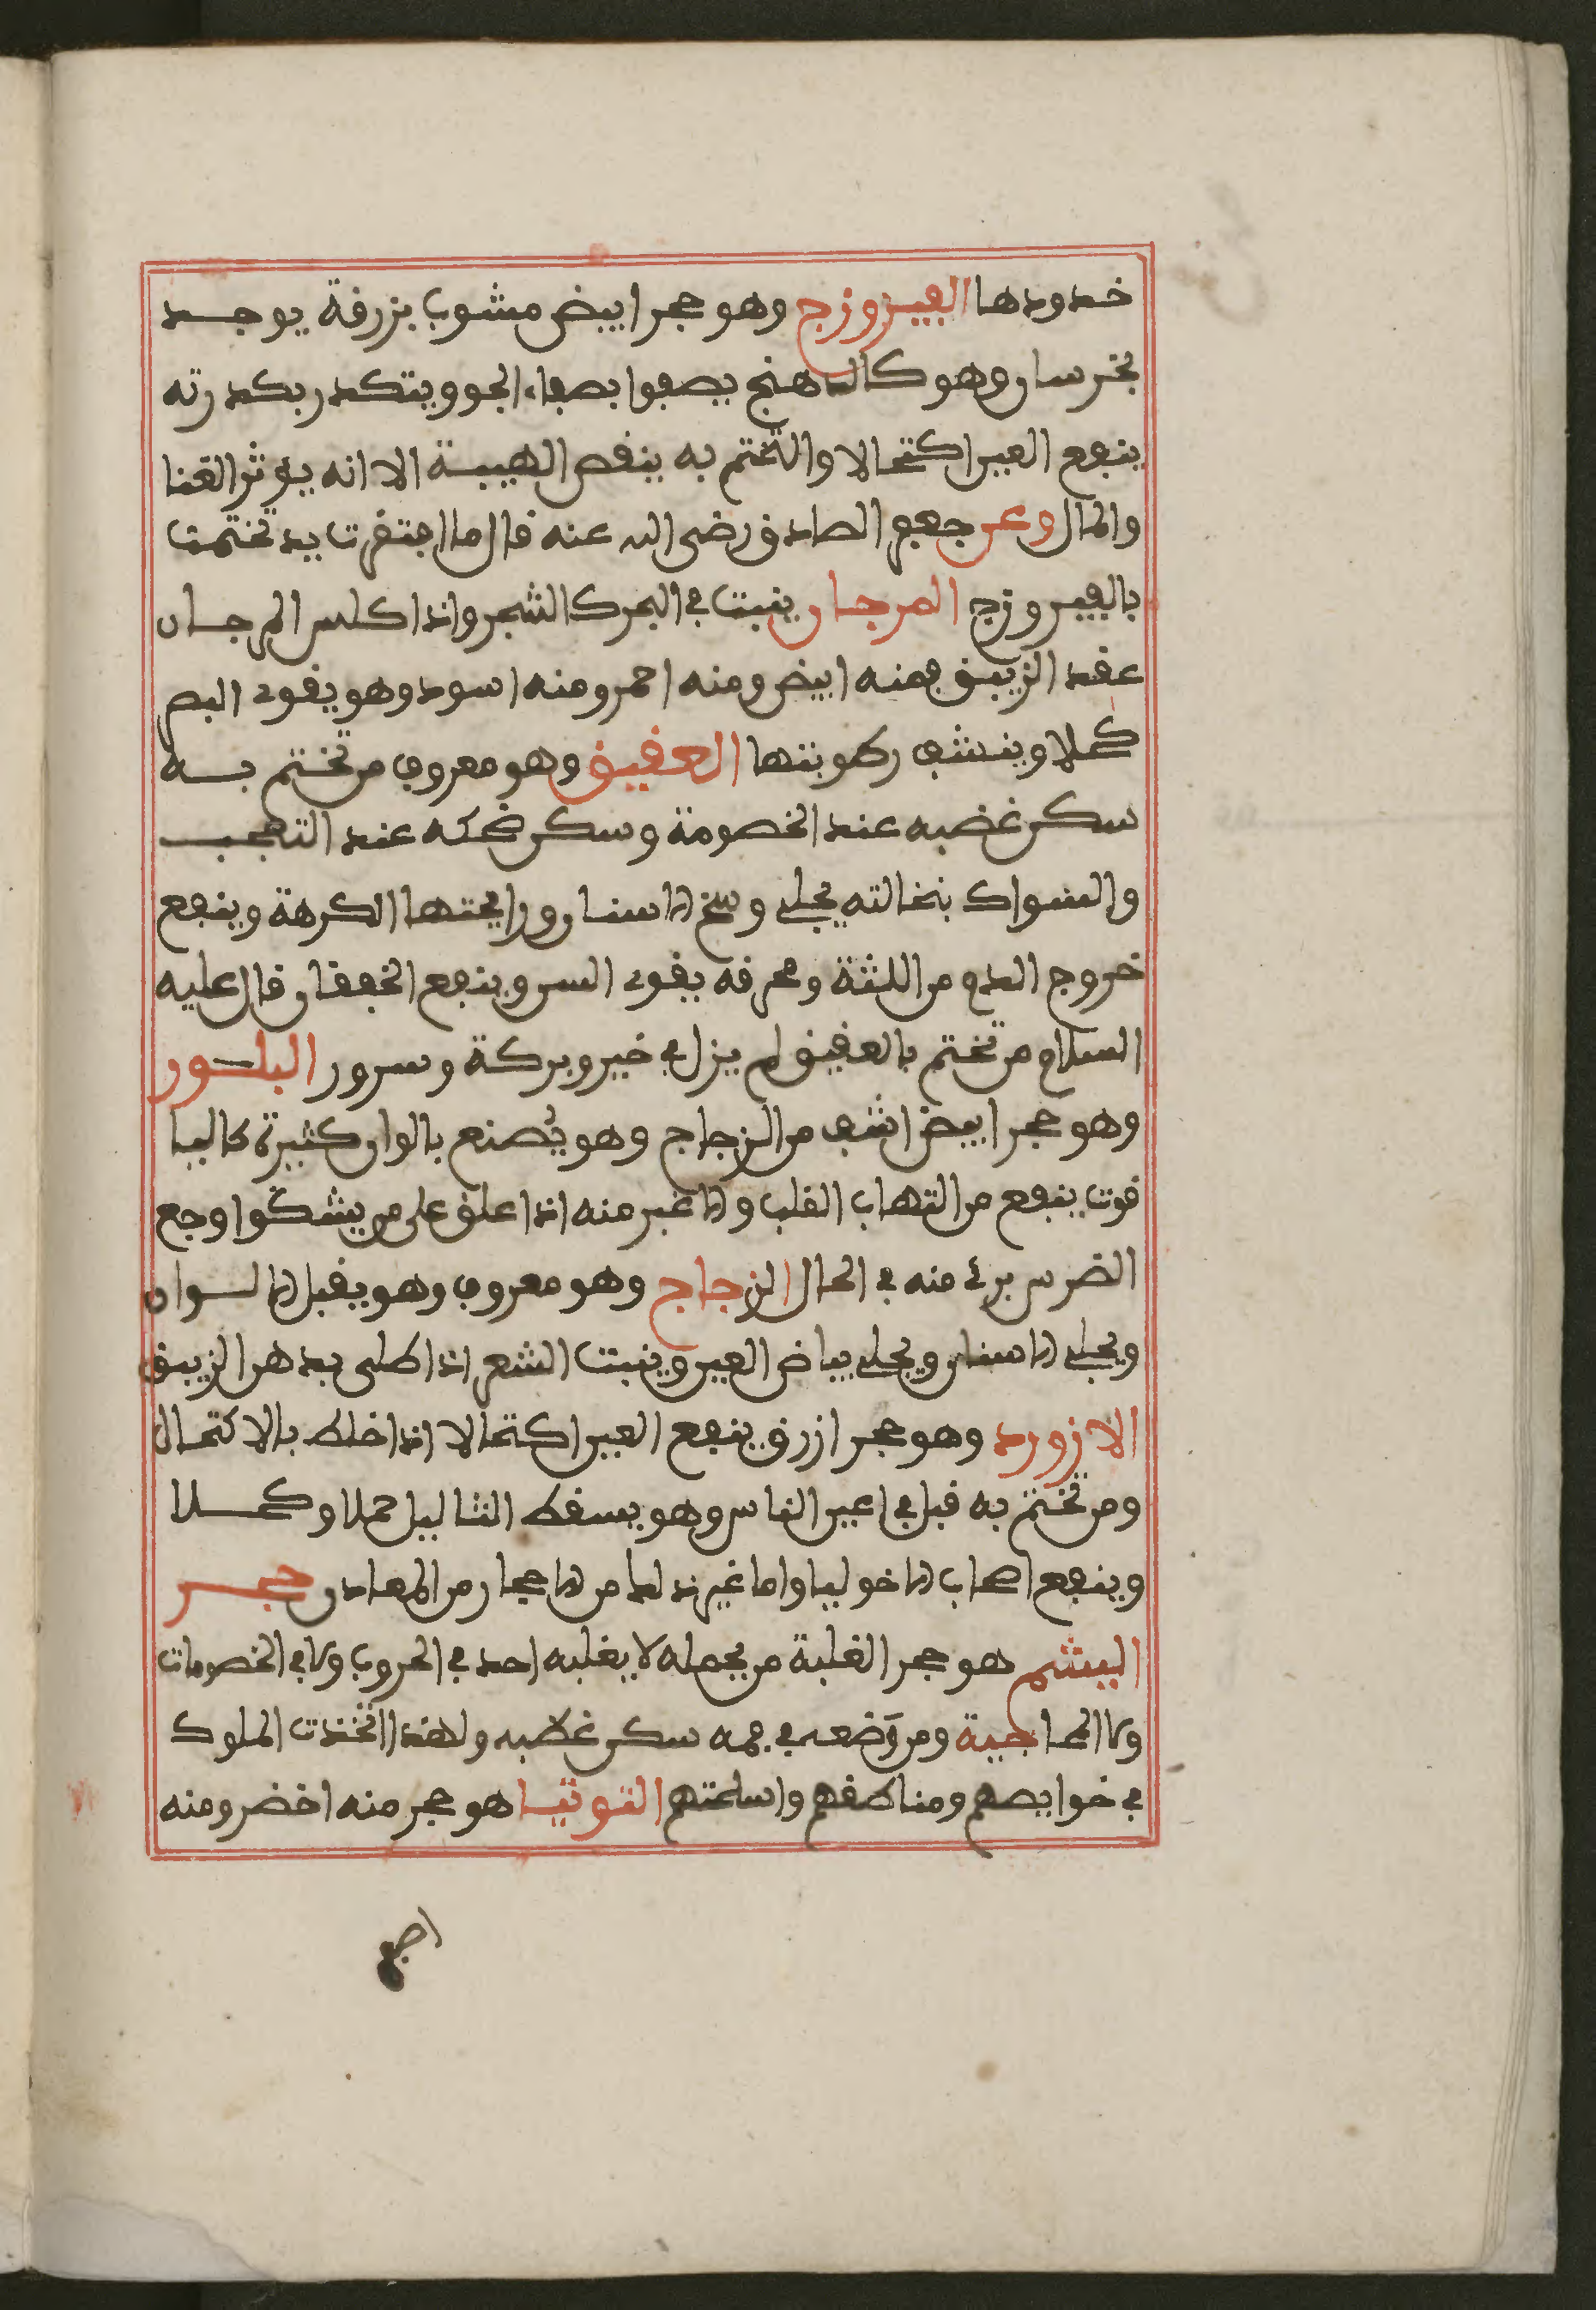 خدودها الفيروزج وهو حجر ابيض مشوب بزرقة يوجد
بخرسان وهو كالدهنج يصفوا بصفاء الجو ويتكدر بكدرته
ينفع العين اكتحالا والتختم به ينقص الهيبة الا انه يؤثر الغنا
والمال وعن جعفر الصادق رضى الله عنه قال ما اجتقرت يد تختمت
بالفيروزج المرجان ينبت في البحر كالشجر واذا كلس المرجان
عقد الزيبق فمنه ابيض ومنه احمر ومنه اسود وهو يقوى البصر
كحلا وينشف رطوبتها العقيق وهو معروف من تختم به
سكن غضبه عند الخصومة وسكن ضحكه عند التعجب
والسواك بنخالته يجلى وسخ الاسنان ورايحتها الكرهة وينفع
خروج الدم من اللثة ومحرقه يقوى السن وينفع الخفقان قال عليه
السلام من تختم بالعقيق لم يزل في خير وبركة وسرور البلور
وهو حجر ابيض اشف من الزجاج وهو يُصنع بالوان كثيرة كاليا
قوت ينفع من التهاب القلب والاغبر منه اذا علق على من يشكوا وجع
الضرس برئ منه في الحال الزجاج وهو معروف وهو يقبل الالوان
ويجلى الاسنان ويجلى بياض العين وينبت الشعر اذا طلى بدهن الزيبق
الازورد وهو حجر ازرق ينفع العين اكتحالا اذا خلط بالاكتحال
ومن تختم به قبل في اعين الناس وهو يسقط الثاليل حملا وكحلا
وينفع اصحاب الماخوليا واما غير ذلك من الاحجار من المعادن حجر
اليشم هو حجر الغلبة من يحمله لا يغلبه احد في الحروب ولا في الخصومات
ولا المحاجية ومن وَضعه في فمه سكن غلاصبه ولهذا اتخذت الملوك
في خوايصهم ومناطقهم واسلحتهم التوتيا هو حجر منه اخضر ومنه
اصفر